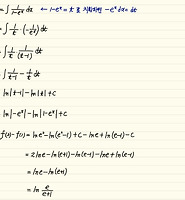 = ∫ 1/(1-eˣ) dx ← 1-eˣ = t 로 치환하면 -eˣ dx = dt
= ∫ 1/t · (-1/eˣ) dt
= ∫ 1/t · 1/(t-1) dt
= ∫ 1/(t-1) - 1/t dt
ln|t-1| - ln|t| + C
ln|-eˣ| - ln|1-eˣ| + C
f(2) - f(1) = ln e² - ln(e²-1) + C - ln e + ln(e-1) - C
= 2 ln e - ln(e+1) - ln(e-1) - ln e + ln(e-1)
= ln e - ln(e+1)
= ln e/(e+1)